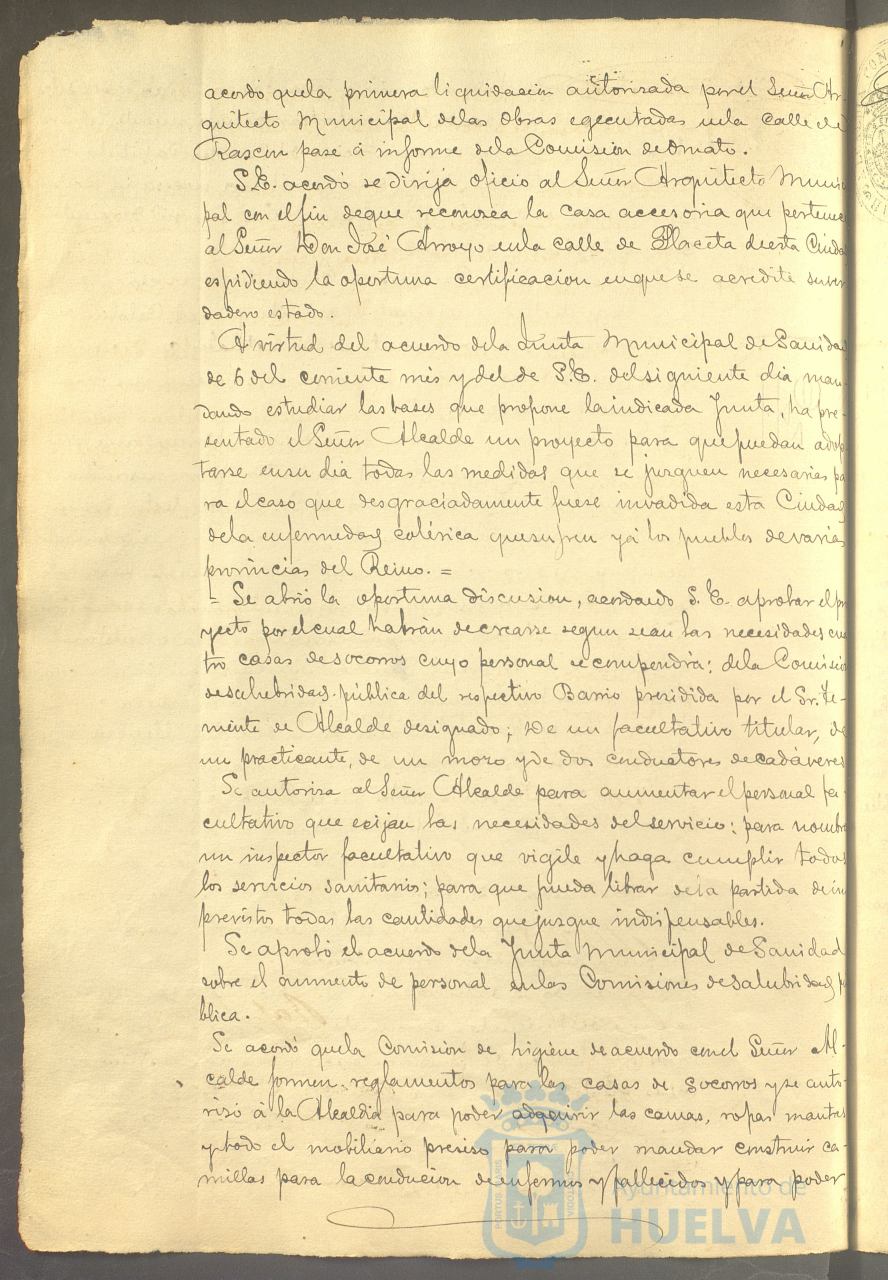 acordó quela primera liquidacion autorisada porel Señor Ar-
quitecto Municipal delas obras egecutadas enla calle de
Rascon pase á informe dela Comision de Ornato.
S.E. acordó se dirija oficio al Señor Arquitecto Munici
pal con elfin deque reconozca la casa accesoria que pertenece
al Señor Don José Arroyo enla calle de Placeta deesta Ciudad
espidiendo la oportuna certificacion enquese acredite suver
dadero estado.
A virtud del acuerdo dela Junta Municipal de Sanidad
de 6 del corriente mes y del de S.E. delsiguiente dia, man-
dando estudiar las bases que propone laindicada Junta, ha pre-
sentado el Señor Alcalde un proyecto para quepuedan adop
tarse ensu dia todas las medidas que se jusguen necesarias pa
ra elcaso que desgraciadamente fuese invadida esta Ciudad
dela enfermedad colérica quesufren yá los pueblos devarias
provincias del Reino. =
= Se abrió la oportuna discusion, acordando S.E. aprobar el pro
yecto por elcual habrán decrearse segun sean las necesidades cua
tro casas desocorros cuyo personal se compondrá: dela Comision
desalubridad pública del respectivo Barrio presidida por el Sr. Te-
niente de Alcalde designado; De un facultativo titular, de
un practicante, de un mozo y de dos conductores decadáveres
Se autorisa al Señor Alcalde para aumentar elpersonal fa-
cultativo que exijan las necesidades delservicio: para nombrar
un inspector facultativo que vigile y haga cumplir todos
los servicios sanitarios; para que pueda librar dela partida deim
previstos todas las cantidades quejusgue indispensables.
Se aprobó el acuerdo dela Junta Municipal de Sanidad
sobre el aumento de personal enlas Comisiones desalubridad pú
blica.
Se acordó quela Comision de higiene deacuerdo conel Señor Al-
calde formen reglamentos para las casas de socorros y se auto-
risó á la Alcaldia para poder adquirir las camas, ropas mantas
y todo el mobiliario presiso para poder mandar construir ca-
millas para la conducion deenfermos y fallecidos y para poder
PORTUS MARIS
CUSTODIA
Ayuntamiento de
HUELVA